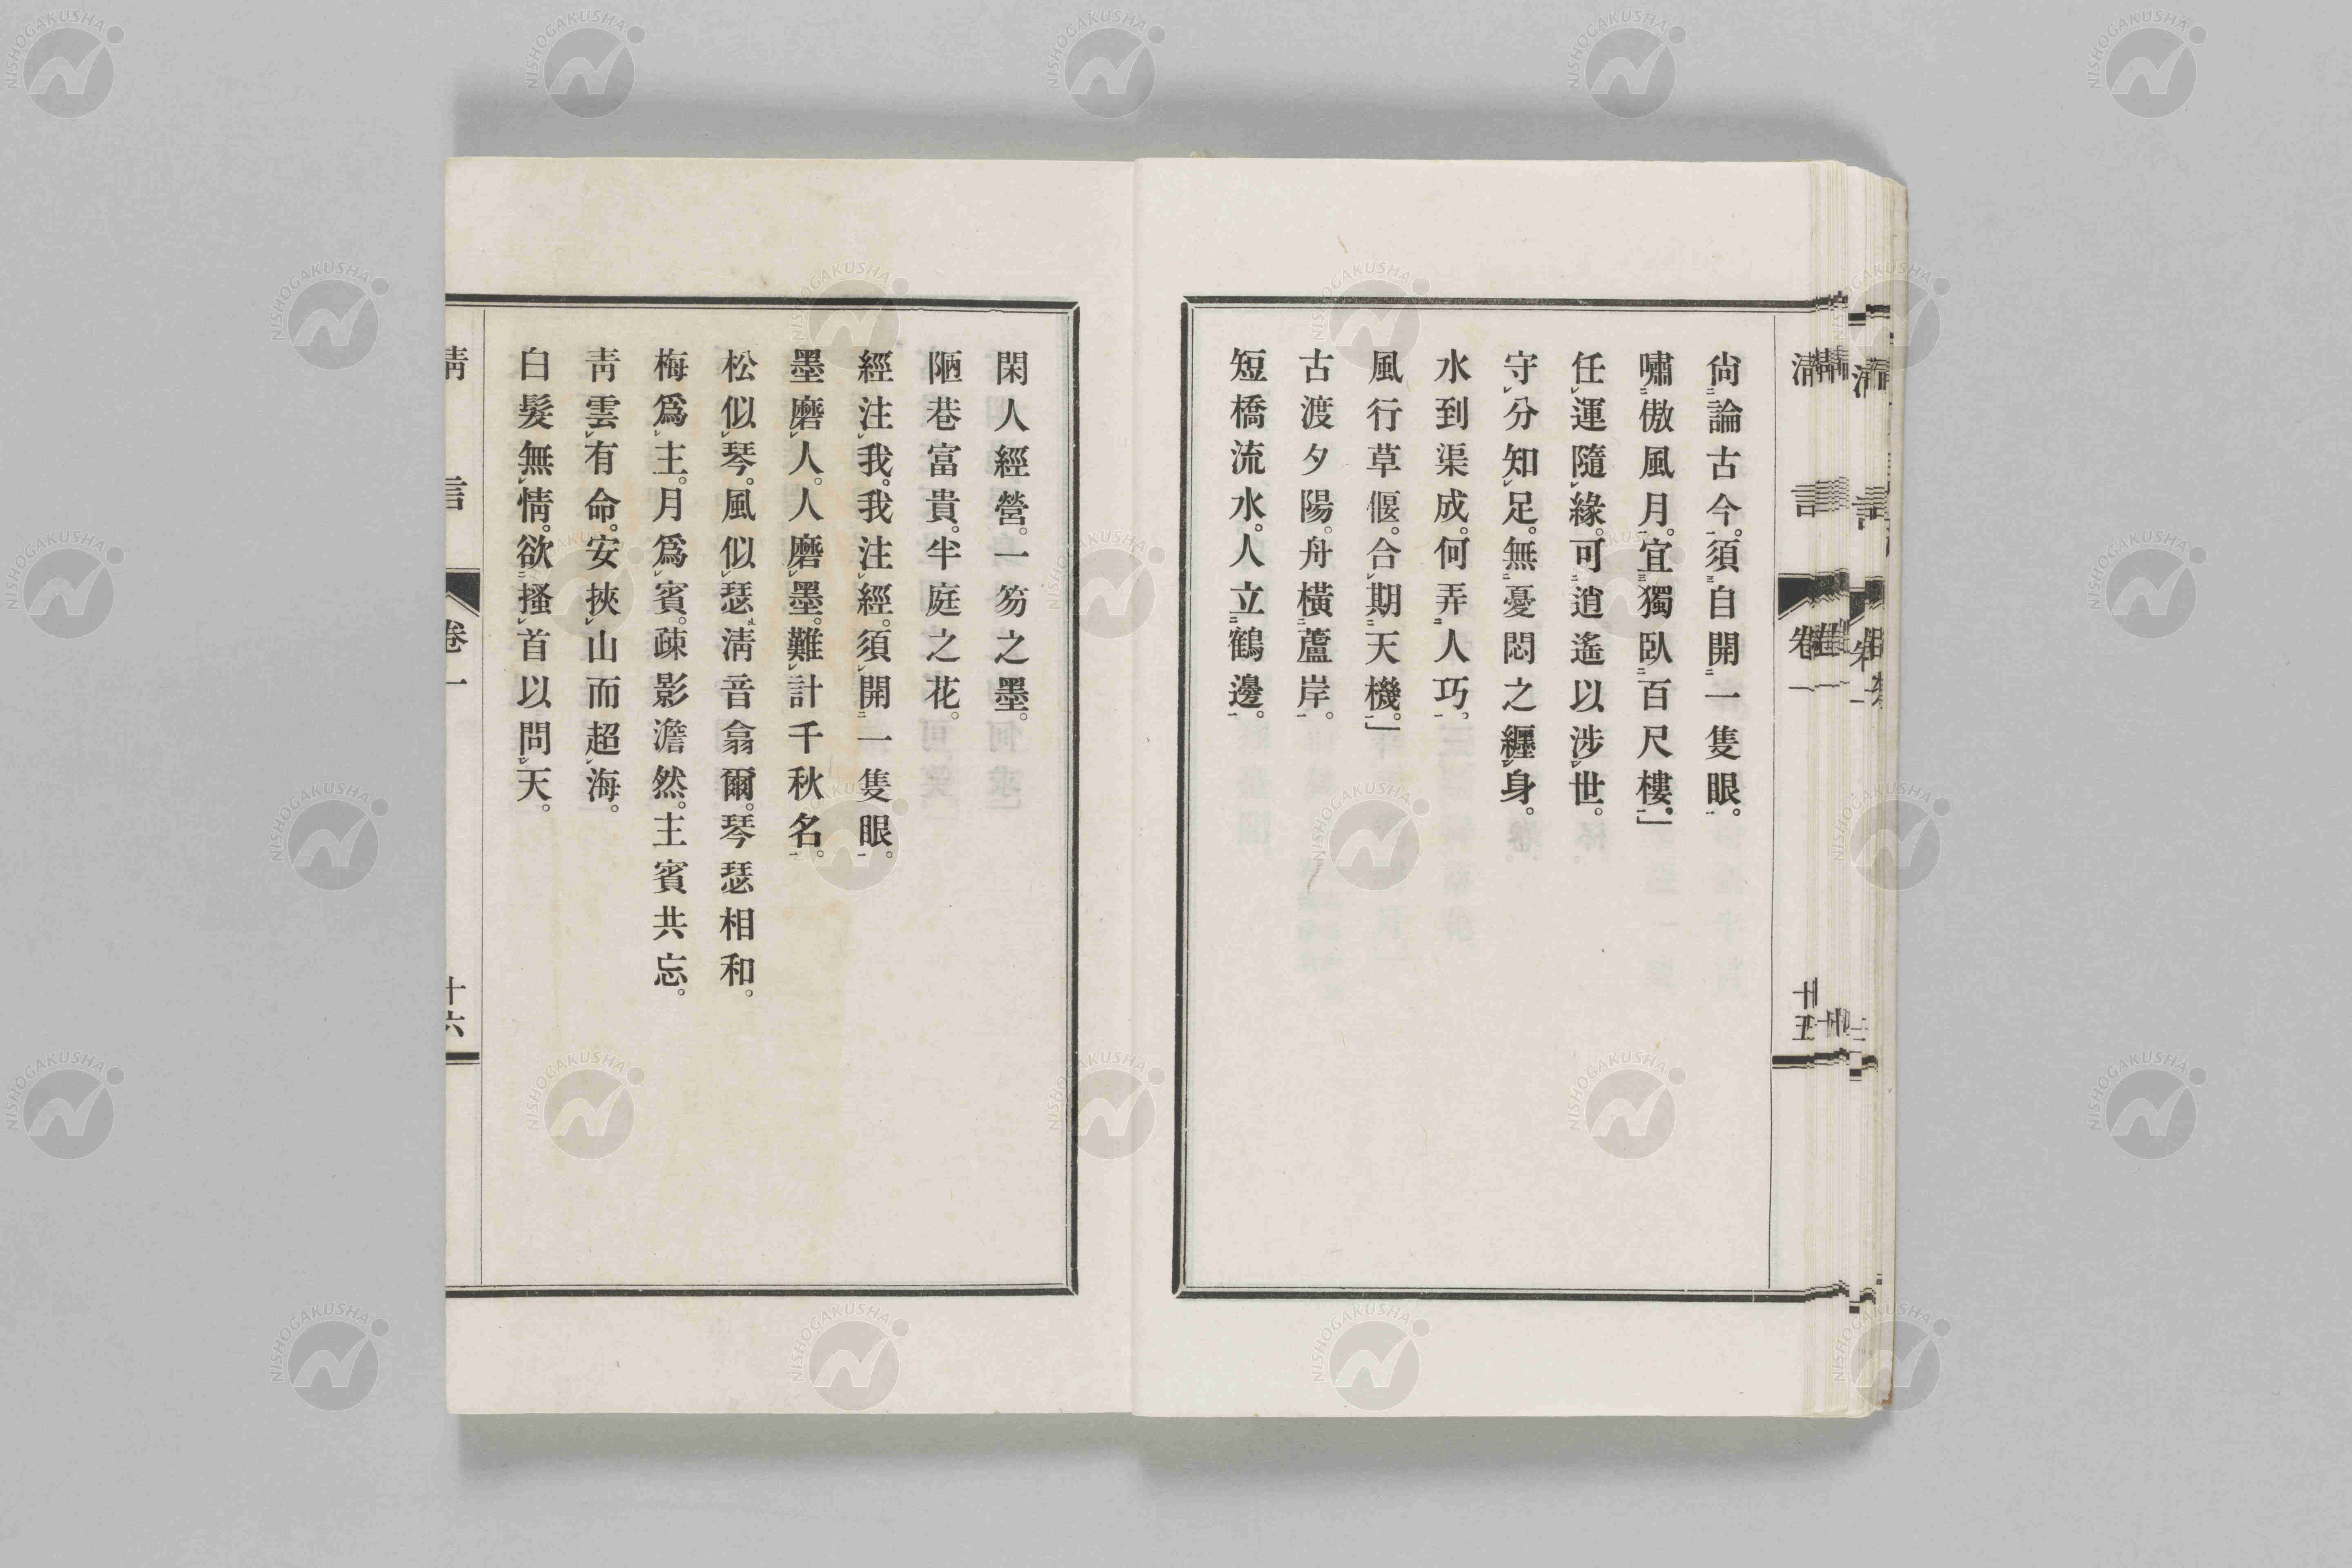 尙論古今。須自開一隻眼。
嘯傲風月。宜獨臥百尺樓。」
任運隨緣。可逍遙以涉世。
守分知足。無憂悶之纒身。
水到渠成。何弄人巧。
風行草偃。合期天機。」
古渡夕陽。舟橫蘆岸。
短橋流水。人立鶴邊。
淸言 卷一 十五
閑人經營。一笏之墨。
陋巷富貴。半庭之花。
經注我。我注經。須開一隻眼。
墨磨人。人磨墨。難計千秋名。
松似琴。風似瑟。淸音翕爾。琴瑟相和。
梅爲主。月爲賓。疎影澹然。主賓共忘。
靑雲有命。安挾山而超海。
白髮無情。欲搔首以問天。
淸言 卷一 十六
NISHOGAKUSHA